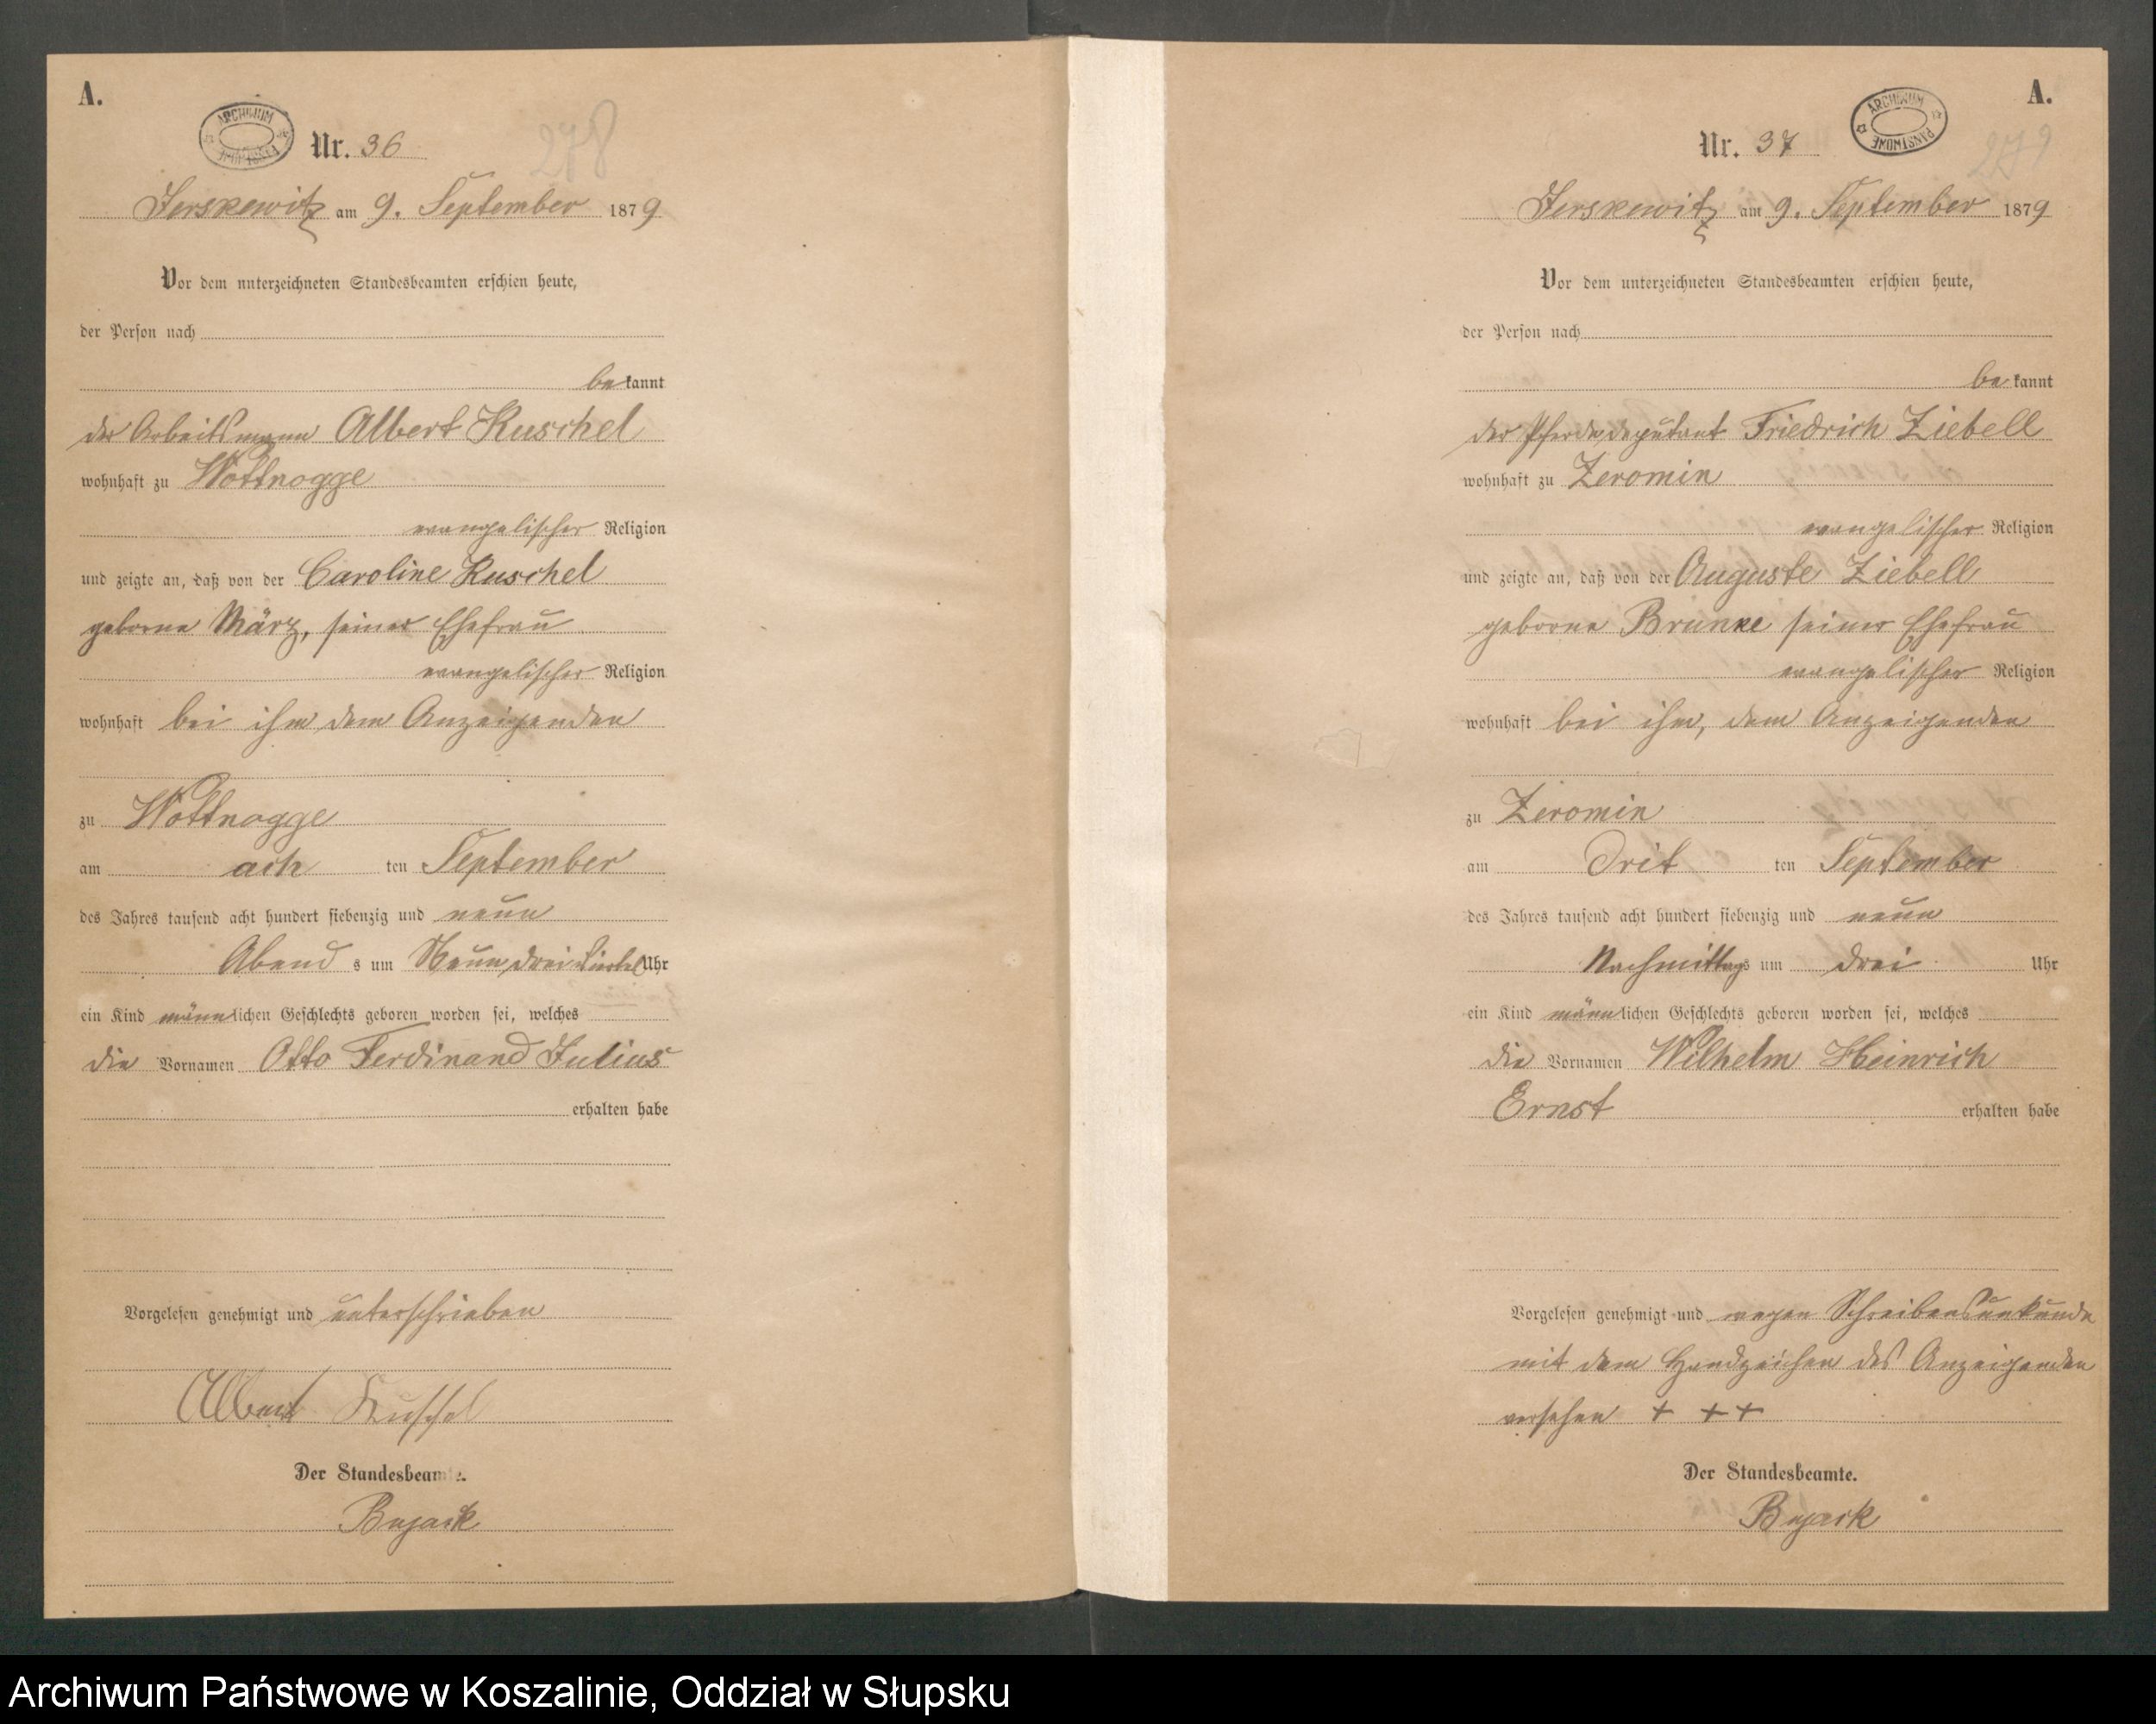 A.
ARCHIWUM PAŃSTWOWE
Nr. 36
278
Jerskewitz am 9. September 1879
Vor dem unterzeichneten Standesbeamten erschien heute,
der Person nach
be kannt
der Arbeitsmann Albert Kuschel
wohnhaft zu Wottnogge
evangelischer Religion
und zeigte an, daß von der Caroline Kuschel
geborne März, seiner Ehefrau
evangelischer Religion
wohnhaft bei ihm dem Anzeigenden
zu Wottnogge
am ach ten September
des Jahres tausend acht hundert siebenzig und neun
Abend s um Neun drei Viertel Uhr
ein Kind männlichen Geschlechts geboren worden sei, welches
die Vornamen Otto Ferdinand Julius
erhalten habe
Vorgelesen genehmigt und unterschrieben
Albert Kuschel
Der Standesbeamte.
Bujack
A.
ARCHIWUM PAŃSTWOWE
Nr. 37
279
Jerskewitz am 9. September 1879
Vor dem unterzeichneten Standesbeamten erschien heute,
der Person nach
be kannt
der Pferdedeputant Friedrich Ziebell
wohnhaft zu Zeromin
evangelischer Religion
und zeigte an, daß von der Auguste Ziebell
geborne Brunke seiner Ehefrau
evangelischer Religion
wohnhaft bei ihm, dem Anzeigenden
zu Zeromin
am Drit ten September
des Jahres tausend acht hundert siebenzig und neun
Nachmittags um drei Uhr
ein Kind männlichen Geschlechts geboren worden sei, welches
die Vornamen Wilhelm Heinrich
Ernst erhalten habe
Vorgelesen genehmigt und wegen Schreibensunkunde
mit dem Handzeichen des Anzeigenden
versehen + + +
Der Standesbeamte.
Bujack
Archiwum Państwowe w Koszalinie, Oddział w Słupsku